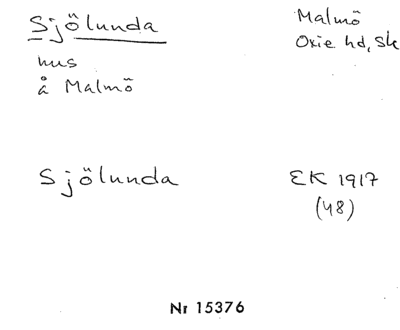 Sjölunda
Malmö
Oxie hd, Sk
hus
å Malmö
Sjölunda
EK 1917
(48)
Nr 15376